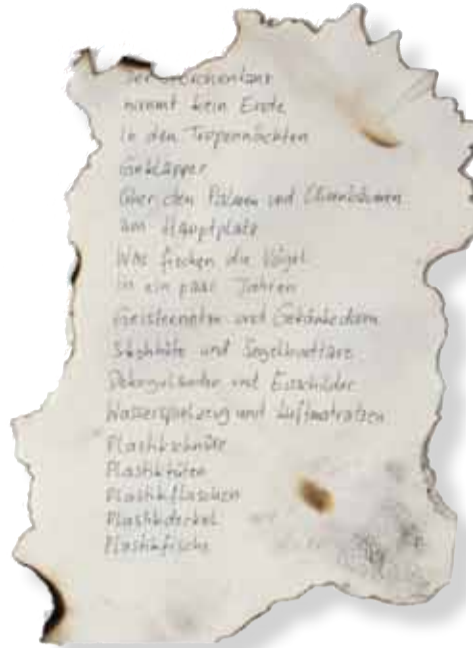 Der Storchentanz
nimmt kein Ende
in den Tropennächten
Geklapper
über den Palmen und Olivenbäumen
am Hauptplatz
Was fischen die Vögel
in ein paar Jahren
Geisternetze und Getränkedosen
und
und
Wasserspielzeug und Luftmatratzen
Plastikschnüre
Plastiktüten
Plastikflaschen
Plastikdeckel
Plastikfische